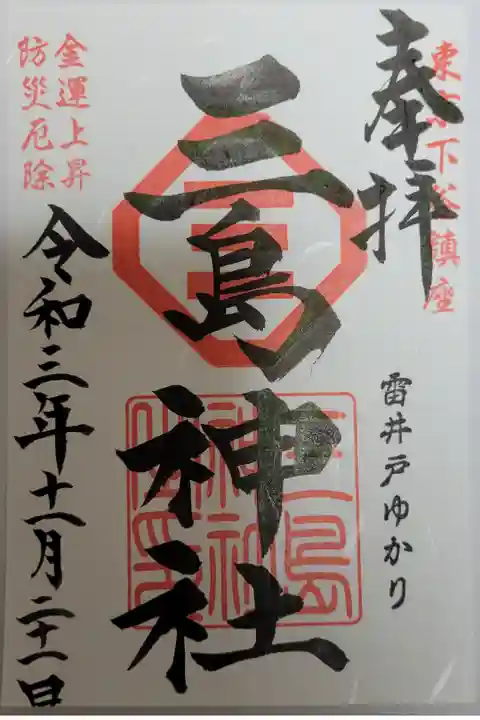 東京下谷鎮座
奉拝
雷井戸ゆかり
三島神社
三島神社
金運上昇
防災厄除
令和三年十一月二十一日